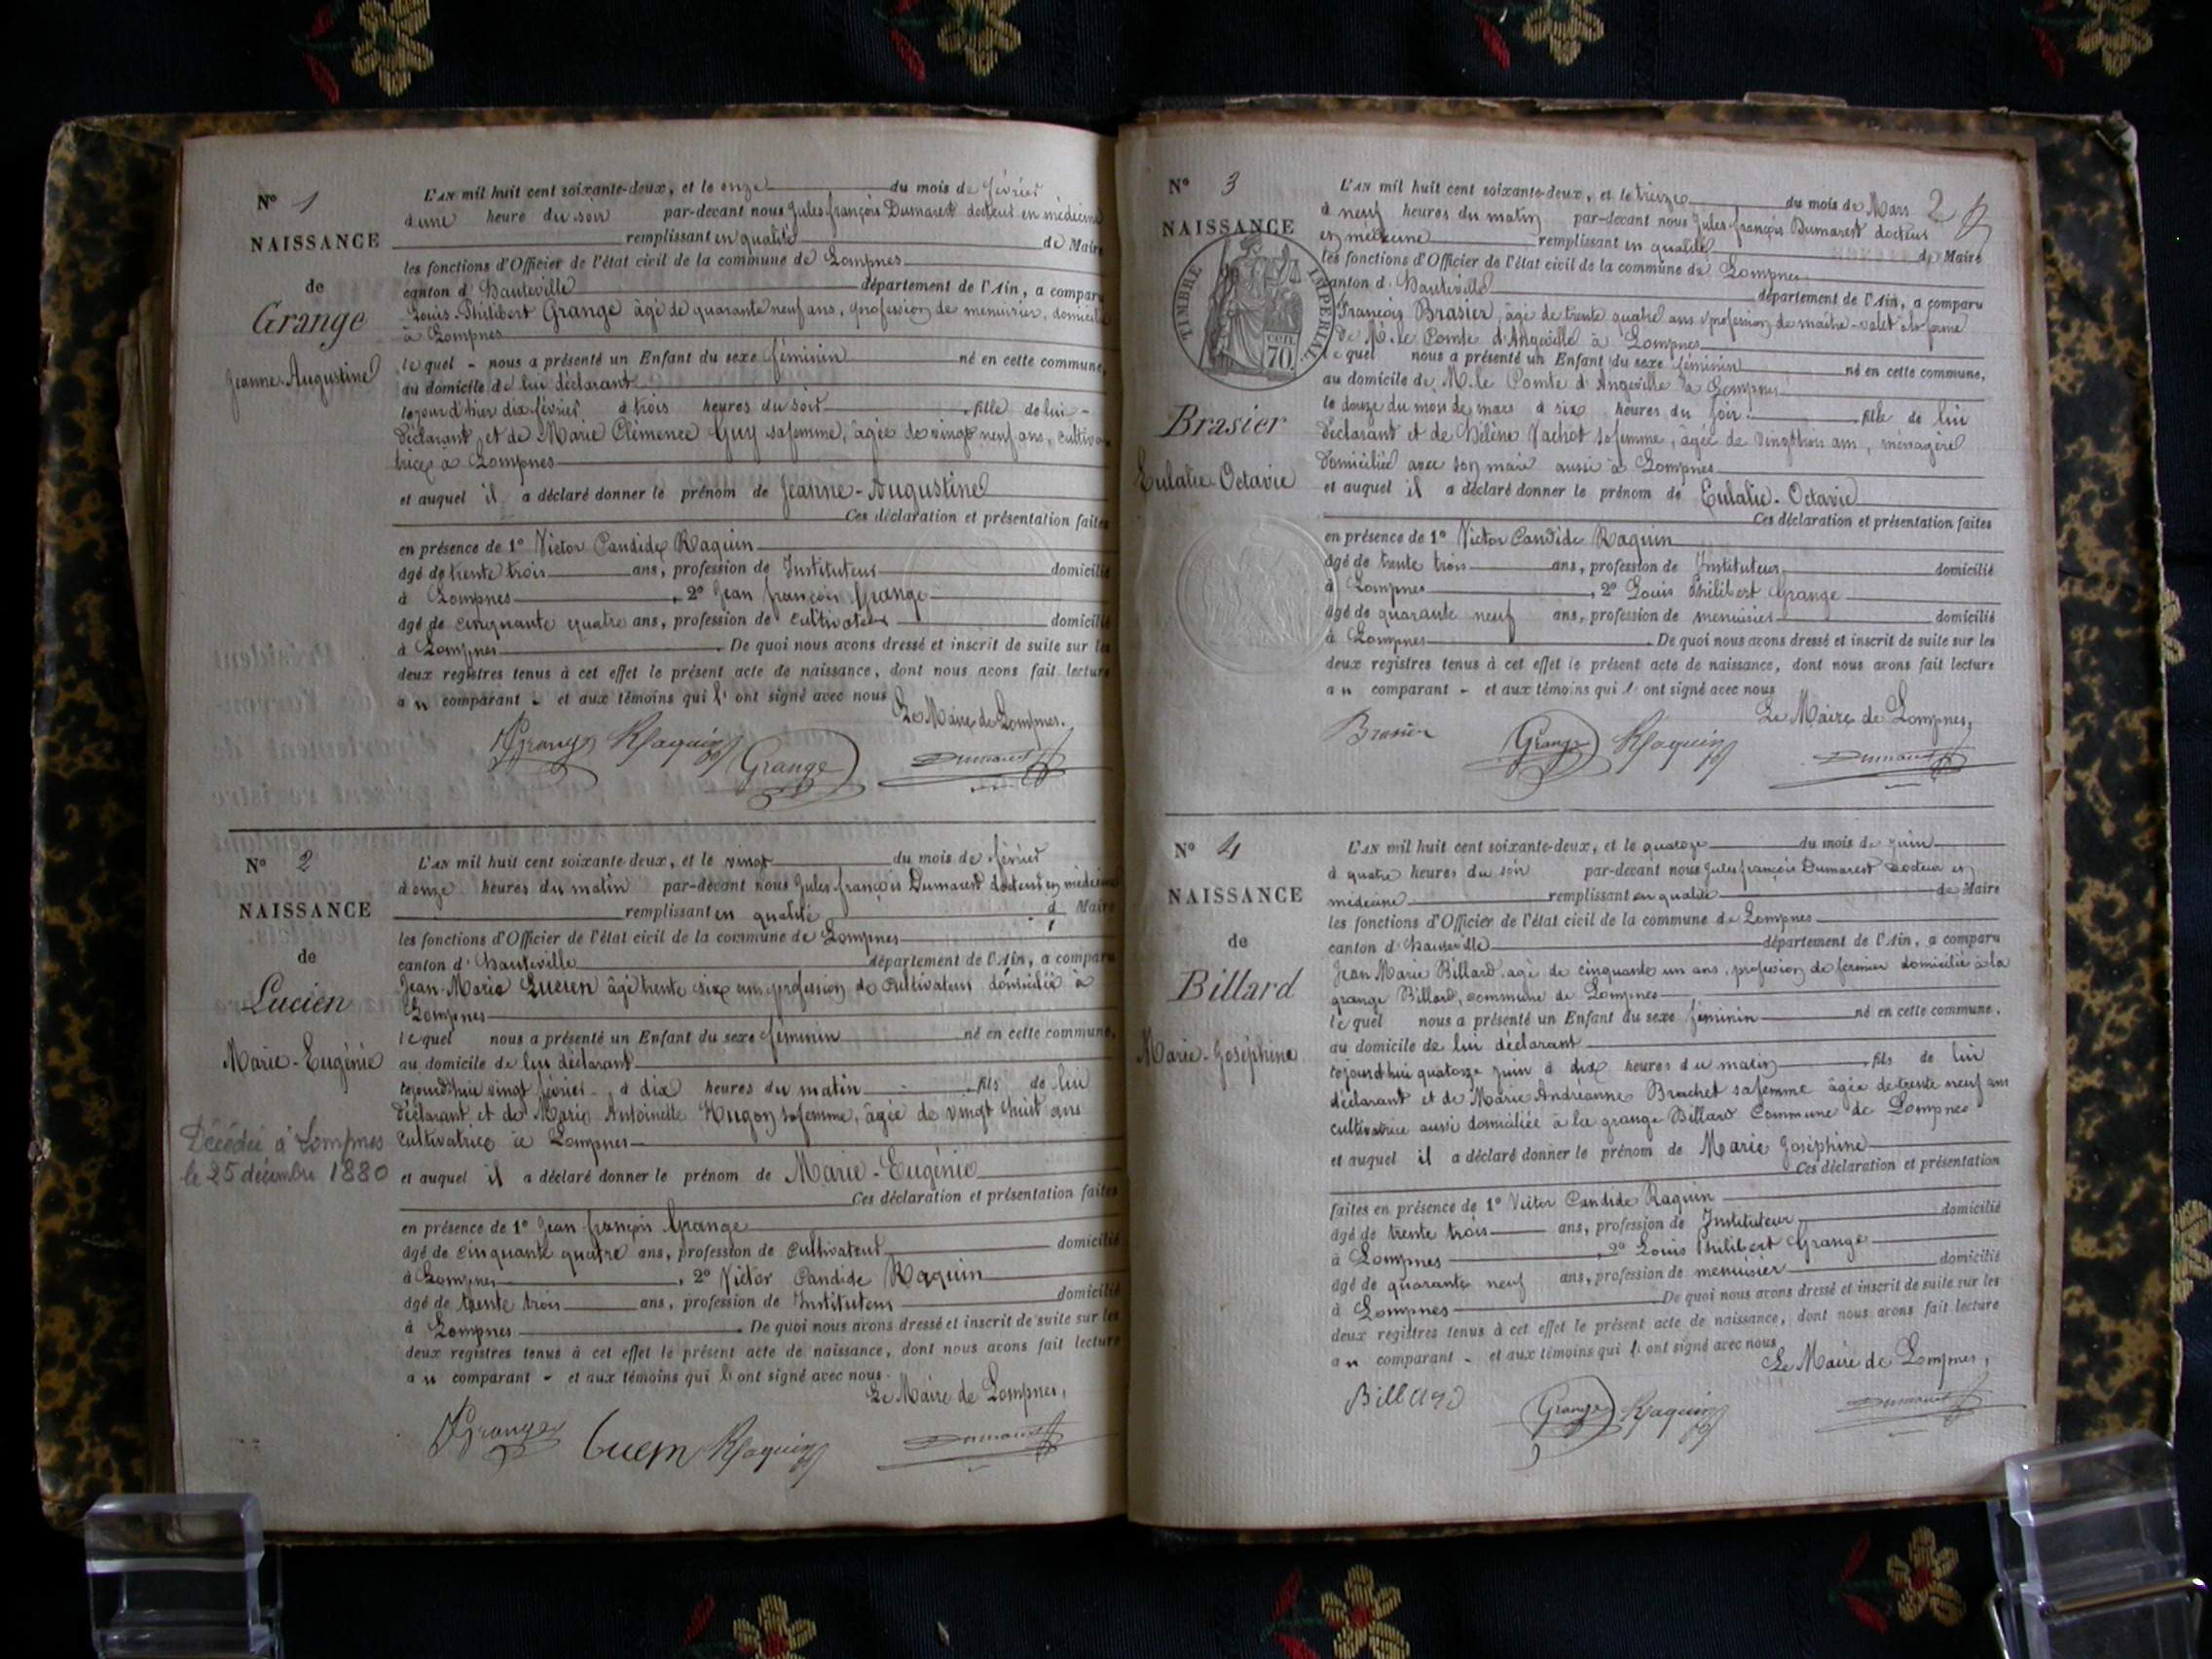 N° 1
NAISSANCE
de
Grange
Jeanne-Augustine
L'AN mil huit cent soixante-deux, et le onze du mois de février
à une heure du soir par-devant nous Jules françois Dumarest docteur en médecine
remplissant en qualité de Maire
les fonctions d'Officier de l'état civil de la commune de Lompnes
canton d'hauteville département de l'Ain, a comparu
Louis-Philibert Grange âgé de quarante neuf ans, profession de menuisier, domicilié
à Lompnes
lequel - nous a présenté un Enfant du sexe féminin né en cette commune,
au domicile de lui déclarant
le jour d'hier dix février à trois heures du soir fille de lui -
déclarant et de Marie Clémence Guy sa femme, âgée de vingt neuf ans, cultiva
trice à Lompnes
et auquel il a déclaré donner le prénom de Jeanne-Augustine
Ces déclaration et présentation faites
en présence de 1° Victor Candide Raquin
âgé de trente trois ans, profession de Instituteur domicilié
à Lompnes, 2° Jean françois Grange
âgé de cinquante quatre ans, profession de cultivateur domicilié
à Lompnes. De quoi nous avons dressé et inscrit de suite sur les
deux registres tenus à cet effet le présent acte de naissance, dont nous avons fait lecture
au comparant - et aux témoins qui l' ont signé avec nous
Le Maire de Lompnes.
Grange Raquin Grange Dumarest
N° 2
NAISSANCE
de
Lucien
Marie-Eugénie
Décédée à Lompnes
le 25 décembre 1880
L'AN mil huit cent soixante-deux, et le vingt du mois de février
à onze heures du matin par-devant nous Jules françois Dumarest docteur en médecine
remplissant en qualité d Maire
les fonctions d'Officier de l'état civil de la commune de Lompnes
canton d'hauteville département de l'Ain, a comparu
Jean-Marie Lucien âgé trente six ans profession de cultivateur domicilié à
Lompnes
lequel nous a présenté un Enfant du sexe féminin né en cette commune,
au domicile de lui déclarant
cejourd'hui vingt février à dix heures du matin fils de lui
déclarant et de Marie Antoinette Hugon sa femme, âgée de vingt huit ans
cultivatrice à Lompnes
et auquel il a déclaré donner le prénom de Marie-Eugénie
Ces déclaration et présentation faites
en présence de 1° Jean françois Grange
âgé de cinquante quatre ans, profession de cultivateur domicilié
à Lompnes, 2° Victor Candide Raquin
âgé de trente trois ans, profession de Instituteur domicilié
à Lompnes. De quoi nous avons dressé et inscrit de suite sur les
deux registres tenus à cet effet le présent acte de naissance, dont nous avons fait lecture
au comparant - et aux témoins qui l' ont signé avec nous.
Le Maire de Lompnes,
Grange Raquin Dumarest
N° 3
NAISSANCE
TIMBRE IMPÉRIAL
CEN.
70.
Brasier
Eulalie-Octavie
2
L'AN mil huit cent soixante-deux, et le treize du mois de Mars
à neuf heures du matin par-devant nous Jules-françois Dumarest docteur
en médecine remplissant en qualité de Maire
les fonctions d'Officier de l'état civil de la commune de Lompnes
canton d'hauteville département de l'Ain, a comparu
François Brasier, âgé de trente quatre ans profession de maître-valet de ferme
de M. le Comte d'Angeville à Lompnes
lequel nous a présenté un Enfant du sexe féminin né en cette commune,
au domicile de M. le Comte d'Angeville à Lompnes
le douze du mois de mars à six heures du soir fille de lui
déclarant et de Hélène Vachot sa femme, âgée de vingt trois ans, ménagère
domiciliée avec son mari aussi à Lompnes
et auquel il a déclaré donner le prénom de Eulalie-Octavie
Ces déclaration et présentation faites
en présence de 1° Victor Candide Raquin
âgé de trente trois ans, profession de Instituteur domicilié
à Lompnes, 2° Louis Philibert Grange
âgé de quarante neuf ans, profession de menuisier domicilié
à Lompnes. De quoi nous avons dressé et inscrit de suite sur les
deux registres tenus à cet effet le présent acte de naissance, dont nous avons fait lecture
au comparant - et aux témoins qui l' ont signé avec nous
Le Maire de Lompnes,
Brasier Grange Raquin Dumarest
N° 4
NAISSANCE
de
Billard
Marie-Joséphine
L'AN mil huit cent soixante-deux, et le quatorze du mois de juin
à quatre heures du soir par-devant nous Jules françois Dumarest docteur en
médecine remplissant en qualité de Maire
les fonctions d'Officier de l'état civil de la commune de Lompnes
canton d'hauteville département de l'Ain, a comparu
Jean Marie Billard âgé de cinquante un ans, profession de fermier domicilié à la
grange Billard, commune de Lompnes
lequel nous a présenté un Enfant du sexe féminin né en cette commune,
au domicile de lui déclarant
cejourd'hui quatorze juin à dix heures du matin fils de lui
déclarant et de Marie Andréanne Brachet sa femme âgée de trente neuf ans
cultivatrice aussi domiciliée à la grange Billard Commune de Lompnes
et auquel il a déclaré donner le prénom de Marie Joséphine
Ces déclaration et présentation
faites en présence de 1° Victor Candide Raquin
âgé de trente trois ans, profession de Instituteur domicilié
à Lompnes, 2° Louis Philibert Grange
âgé de quarante neuf ans, profession de menuisier domicilié
à Lompnes De quoi nous avons dressé et inscrit de suite sur les
deux registres tenus à cet effet le présent acte de naissance, dont nous avons fait lecture
au comparant - et aux témoins qui l' ont signé avec nous
Le Maire de Lompnes,
Billard Grange Raquin Dumarest